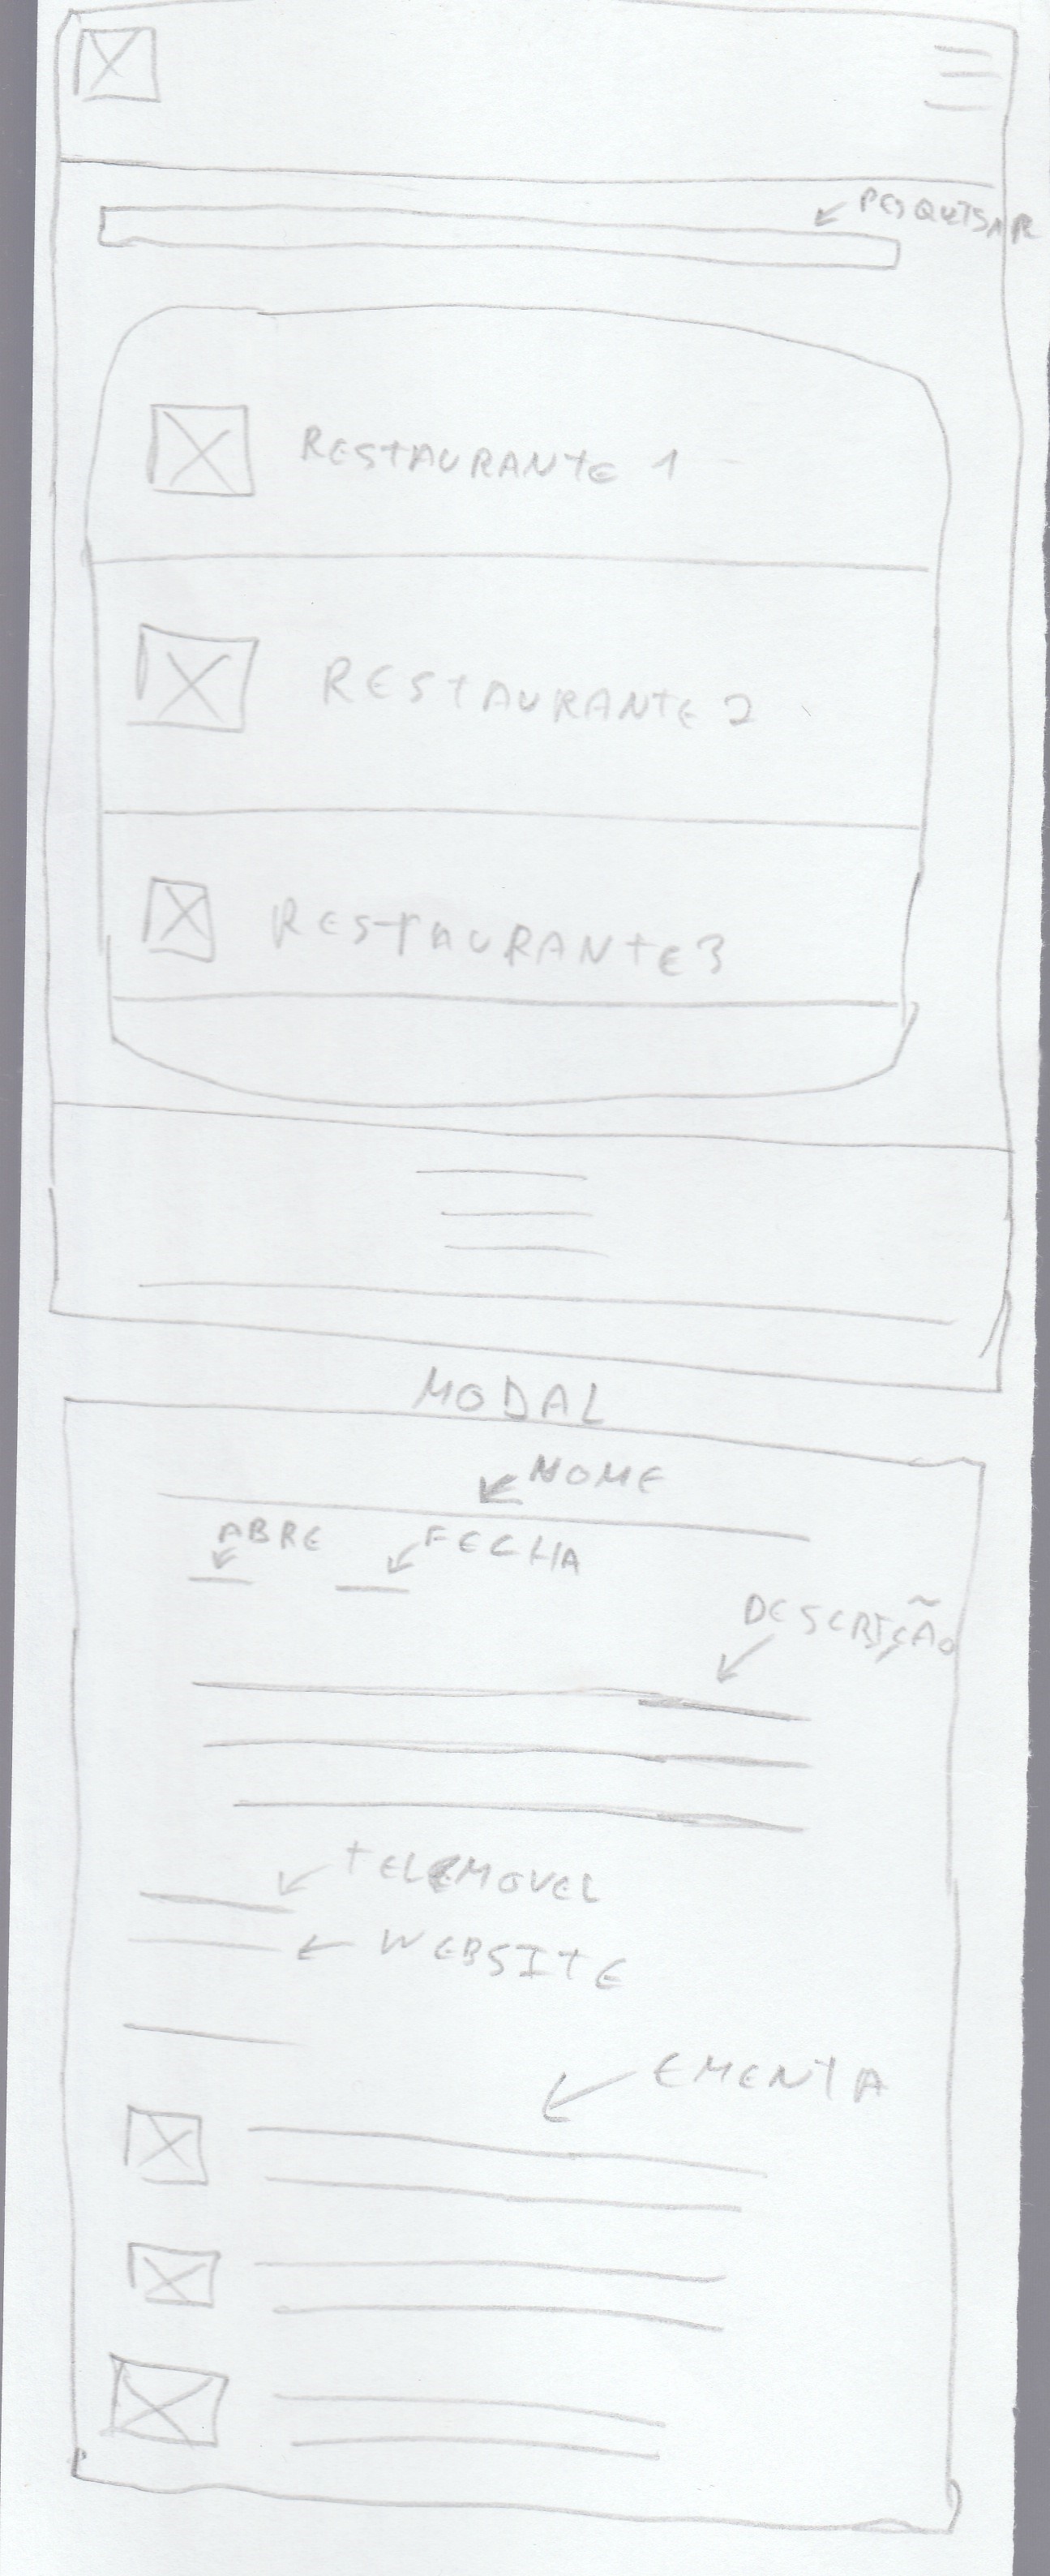 PESQUISAR
RESTAURANTE 1
RESTAURANTE 2
RESTAURANTE 3
MODAL
NOME
ABRE
FECHA
DESCRIÇÃO
TELEMOVEL
WEBSITE
EMENTA